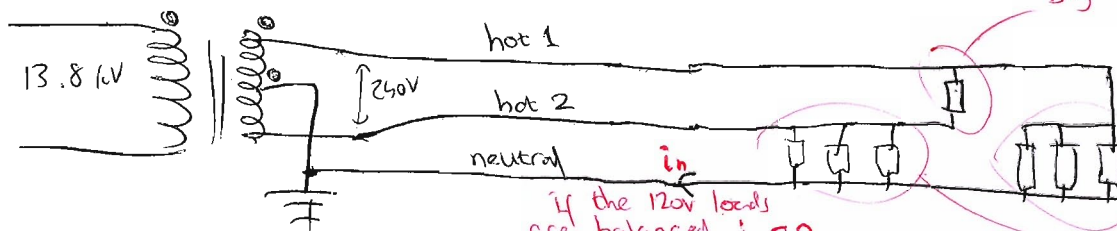 hot 1
13.8 kV
240V
hot 2
neutral
in
if the 120V loads